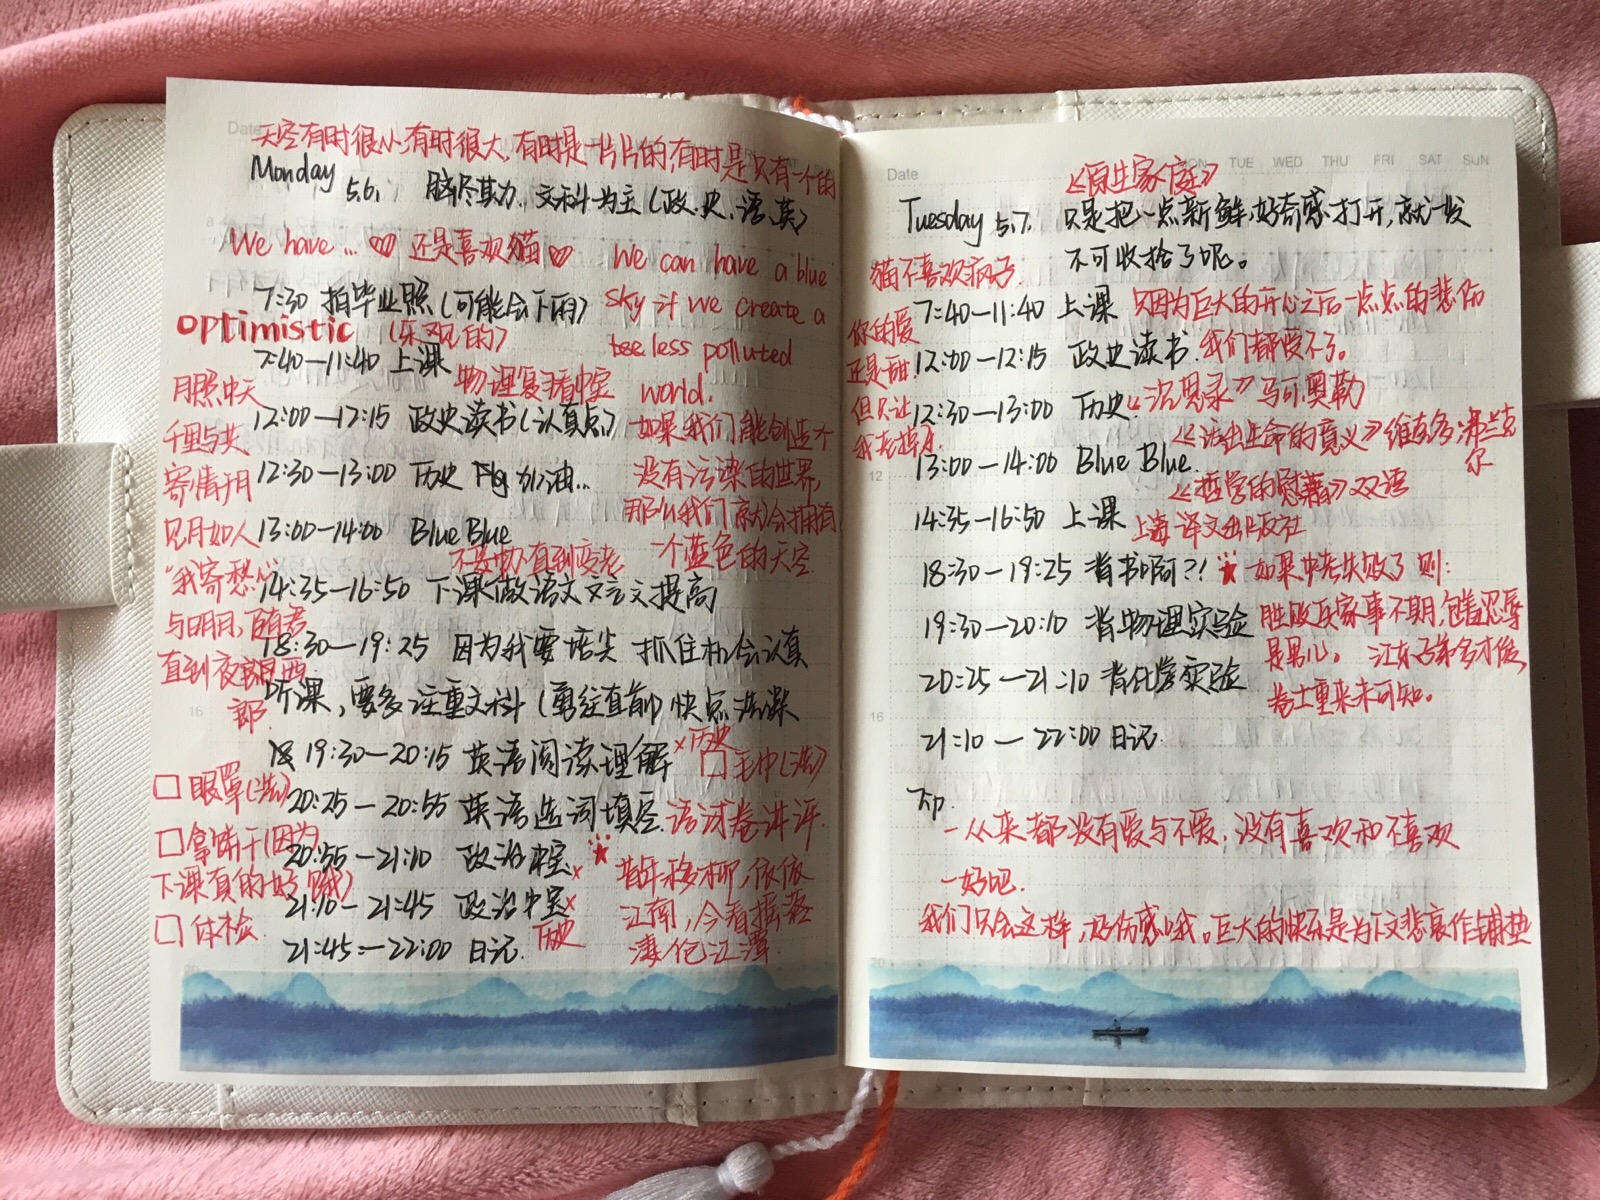 Date
天空有时很小,有时很大,有时是一片片的,有时是只有一个的
Monday 5.6. 脑尽其力,文科为主(政.史.语.英)
We have ... ♡ 还是喜欢猫 ♡
We can have a blue
sky if we create a
less polluted
world.
如果我们能创造个
没有污染的世界,
那么我们就会拥有
一个蓝色的天空.
7:30 拍毕业照(可能会下雨)
optimistic (乐观的)
7:40—11:40 上课
物理复习
12:00—12:15 政史读书(认真点)
12:30—13:00 历史 加油...
13:00—14:00 Blue Blue
14:35—16:50 下课做语文文言文提高
18:30—19:25 因为我要培尖 抓住机会认真
听课,要多注重文科(勇往直前)
19:30—20:15 英语阅读理解 ×历史
□毛巾(洗)
20:25—20:55 英语选词填空.语试卷讲评.
20:55—21:10 政治 ×
21:10—21:45 政治 ×
历史
21:45—22:00 日记.
月照中天
千里与共
寄情于月
见月如人
"我寄愁心
与明月,随君
直到夜郎西
□眼罩(洗)
□拿饼干(因为
下课真的好饿)
□体检
昔年移柳,依依
江南,今看摇落
凄怆江潭.
Date MON TUE WED THU FRI SAT SUN
《原生家庭》
Tuesday 5.7. 只是把一点新鲜,好奇感打开,就一发
不可收拾了呢。
猫不喜欢疯子.
你的爱
还是甜!
但只让
我老掉牙.
7:40—11:40 上课 只因为巨大的开心之后一点点的悲伤
我们都受不了。
12:00—12:15 政史读书.
12:30—13:00 历史.《沉思录》马可奥勒
《活出生命的意义》维克多·弗兰克
尔
13:00—14:00 Blue Blue.
《哲学的慰藉》双语
14:35—16:50 上课 上海译文出版社
18:30—19:25 背书啊?! 如果中考失败了则:
19:30—20:10 背物理实验 胜败兵家事不期,包羞忍辱
是男儿。江东子弟多才俊,
20:25—21:10 背化学实验 卷土重来未可知。
21:10—22:00 日记.
-从来都没有爱与不爱,没有喜欢和不喜欢
-好吧.
我们只会这样,好伤感哦。巨大的快乐是为下文悲哀作铺垫
12
16
20
16